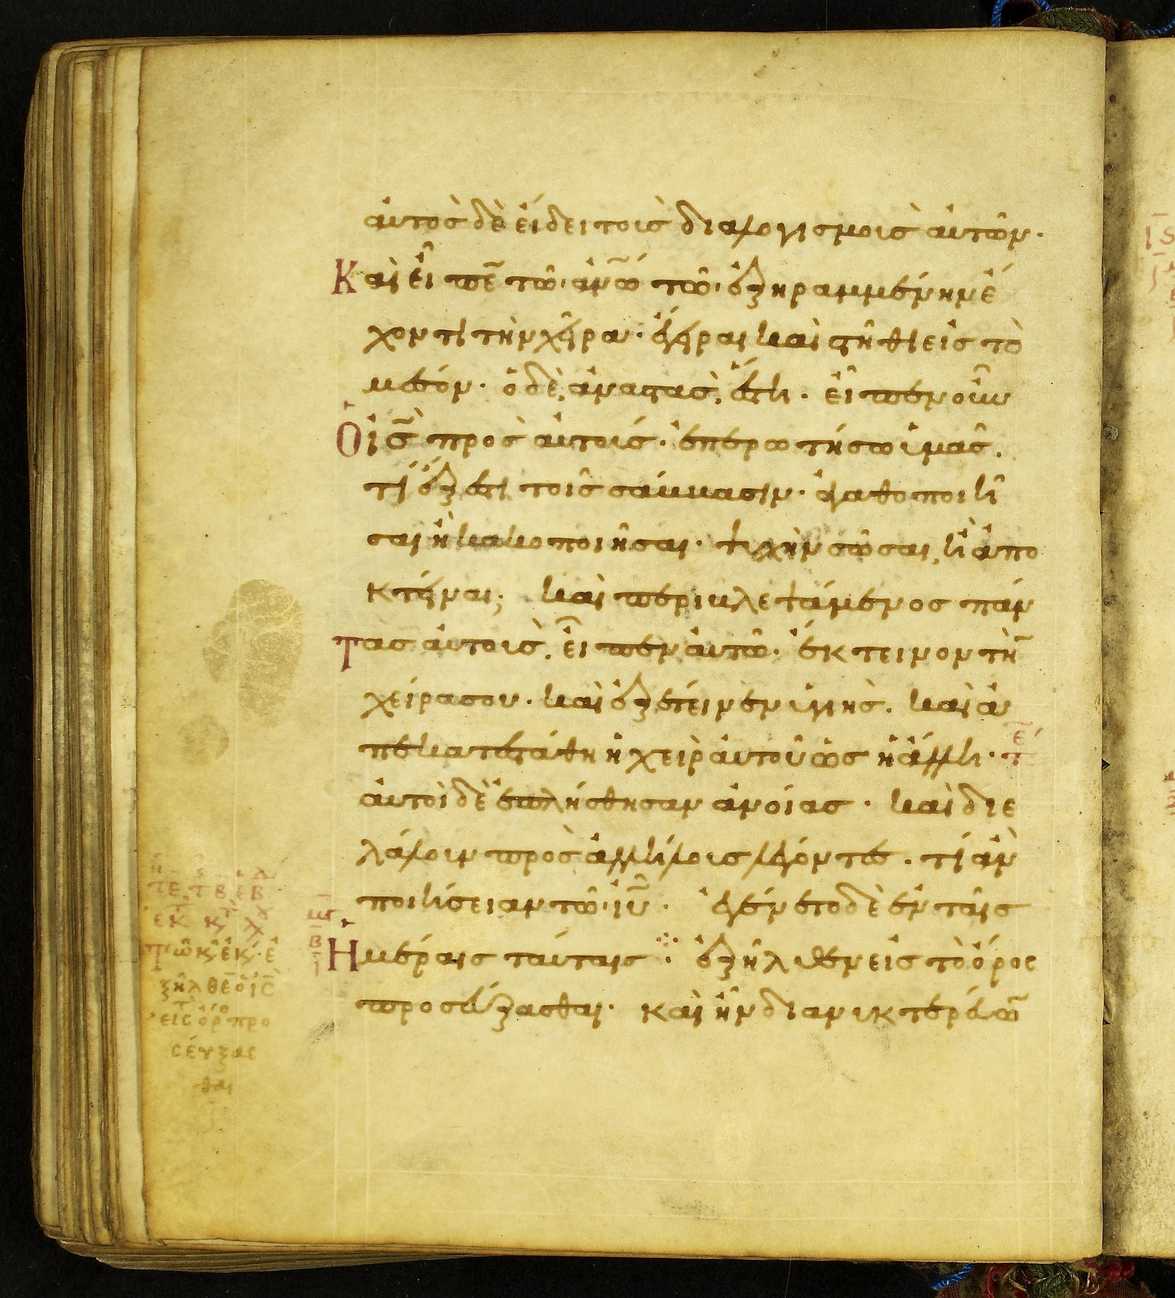 αὐτὸς δὲ ἤδει τοὺς διαλογισμοὺς αὐτῶν·
Καὶ εἶπε τῶ ἀνῶ τῶ ἐξηραμμένην ἔ
χοντι τὴν χεῖρα· ἔγειραι καὶ στῆθι εἰς τὸ
μέσον· ὁ δὲ ἀναστὰς, ἔστη· εἶπεν οὖν
Ὁ ις̅ πρὸς αὐτούς· ἐπερωτήσω ὑμᾶς.
τί ἔξεστι τοῖς σάββασιν· ἀγαθοποιῆ
σαι ἢ κακοποιῆσαι· ψυχὴν σῶσαι, ἢ ἀπο
κτεῖναι; καὶ περιβλεψάμενος πάν
Τας αὐτοὺς, εἶπεν αὐτῶ· ἔκτεινον τὴν
χεῖρα σου· καὶ ἐξέτεινεν ὑγιὴς. καὶ ἀ
πεκατεστάθη ἡ χεὶρ αὐτοῦ ὡς ἡ ἄλλη·
αὐτοὶ δὲ ἐπλήσθησαν ἀνοίας· καὶ διε
λάλουν πρὸς ἀλλήλους λέγοντες. τί ἂν
ποιήσειαν τῶ ιυ̅· ἐγένετο δὲ ἐν ταῖς
Ἡμέραις ταύταις· ἐξῆλθεν εἰς τὸ ὄρος
προσεύξασθαι· καὶ ἦν διανυκτερεύω̅
τῶ κ ἐκ ἐ
ξῆλθεν ὁ ις̅
εἰς τὸ ὄρο προ
σεύξασ
θαι